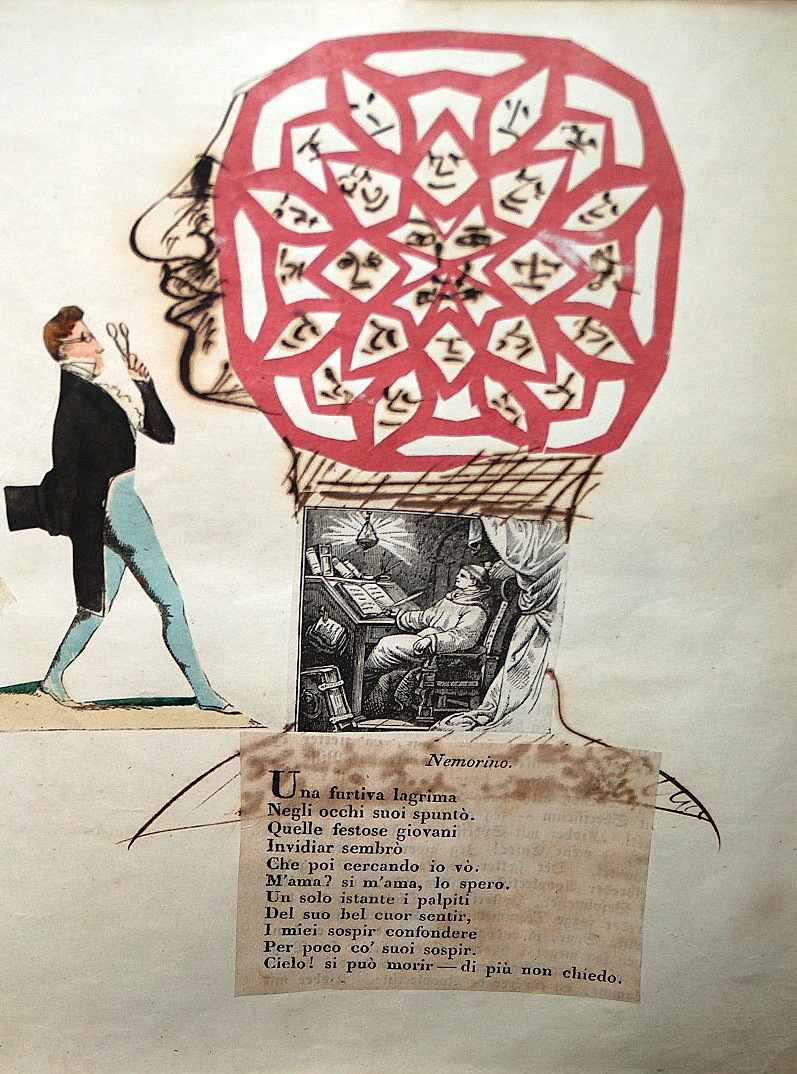 Nemorino.
Una furtiva lagrima
Negli occhi suoi spuntò.
Quelle festose giovani
Invidiar sembrò
Che poi cercando io vò.
M'ama? si m'ama, lo spero.
Un solo istante i palpiti
Del suo bel cuor sentir,
I miei sospir confondere
Per poco co' suoi sospir.
Cielo! si può morir — di più non chiedo.